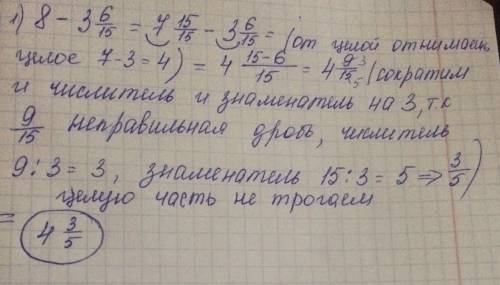 1) 8 - 3 6/15 = 7 15/15 - 3 6/15 = (от целой отнимаем
целое 7-3=4) = 4 (15-6)/15 = 4 9/15 3 5 (сократим
и числитель и знаменатель на 3, тк
9/15 неправильная дробь, числитель
9:3=3, знаменатель 15:3=5 ⇒ 3/5)
целую часть не трогаем
= 4 3/5